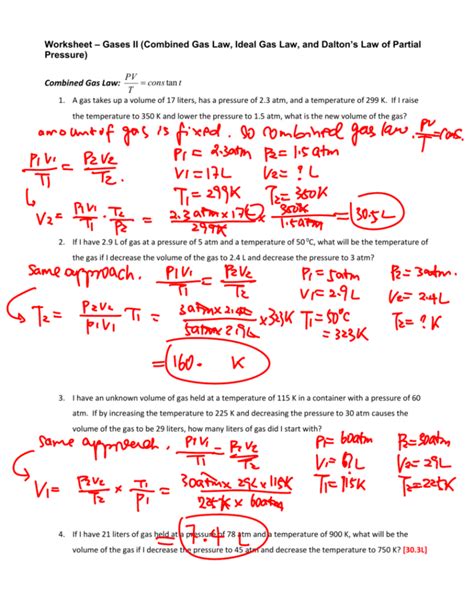 Worksheet – Gases II (Combined Gas Law, Ideal Gas Law, and Dalton's Law of Partial
Pressure)
Combined Gas Law: PV/T = constant
1. A gas takes up a volume of 17 liters, has a pressure of 2.3 atm, and a temperature of 299 K. If I raise
the temperature to 350 K and lower the pressure to 1.5 atm, what is the new volume of the gas?
amount of gas is fixed. so combined gas law. PV/T = cons.
P1V1/T1 = P2V2/T2. P1 = 2.3atm P2 = 1.5atm
V1 = 17L V2 = ? L
T1 = 299K T2 = 350K
V2 = P1V1/T1 · T2/P2 = 2.3atm x 17L/299K x 350K/1.5atm = 30.5L
2. If I have 2.9 L of gas at a pressure of 5 atm and a temperature of 50 ⁰C, what will be the temperature of
the gas if I decrease the volume of the gas to 2.4 L and decrease the pressure to 3 atm?
Same approach. P1V1/T1 = P2V2/T2 P1 = 5atm P2 = 3atm.
V1 = 2.9L V2 = 2.4L
T2 = P2V2/P1V1 T1 = 3atm x 2.4L/5atm x 2.9L x 323K T1 = 50°C T2 = ? K
= 323K
= 160. K
3. I have an unknown volume of gas held at a temperature of 115 K in a container with a pressure of 60
atm. If by increasing the temperature to 225 K and decreasing the pressure to 30 atm causes the
volume of the gas to be 29 liters, how many liters of gas did I start with?
Same approach. P1V1/T1 = P2V2/T2 P1 = 60atm P2 = 30atm
V1 = ? L V2 = 29L
V1 = P2V2/T2 x T1/P1 = 30atm x 29L x 115K/225K x 60atm T1 = 115K T2 = 225K
= 7.4 L
4. If I have 21 liters of gas held at a pressure of 78 atm and a temperature of 900 K, what will be the
volume of the gas if I decrease the pressure to 45 atm and decrease the temperature to 750 K? [30.3L]